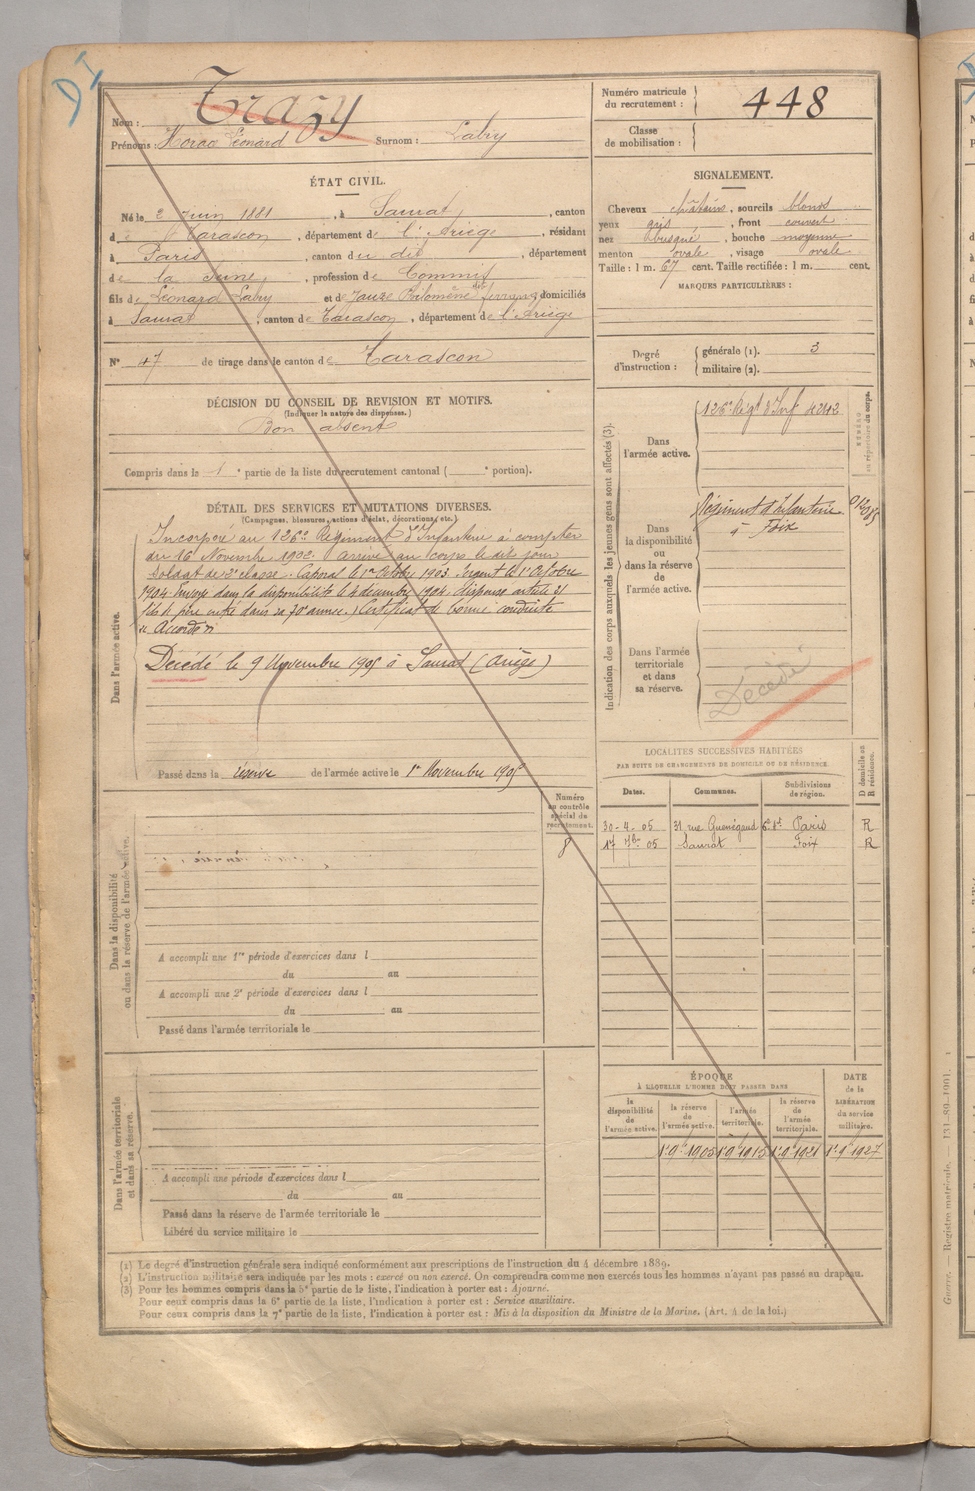 DI
Nom : Trazy
Prénoms : Horac Léonard Surnom : Labry
Numéro matricule du recrutement : 448
Classe de mobilisation :
ÉTAT CIVIL.
Né le 2 Juin 1881, à Saurat, canton
de Tarascon, département de l'Ariège, résidant
à Paris, canton du dit, département
de la Seine, profession de Commis
fils de Léonard Labry et de Jauze Philomène domiciliés
à Saurat, canton de Tarascon, département de l'Ariège
N° 47 de tirage dans le canton de Tarascon
DÉCISION DU CONSEIL DE REVISION ET MOTIFS.
(Indiquer la nature des dispenses.)
Bon absent
Compris dans la 1 e partie de la liste du recrutement cantonal ( e portion).
SIGNALEMENT.
Cheveux châtains, sourcils blonds
yeux gris, front couvert
nez busqué, bouche moyenne
menton ovale, visage ovale
Taille : 1 m. 67 cent. Taille rectifiée : 1 m. cent.
MARQUES PARTICULIÈRES :
Degré d'instruction : générale (1). 3
militaire (2).
DÉTAIL DES SERVICES ET MUTATIONS DIVERSES.
(Campagnes, blessures, actions d'éclat, décorations, etc.)
Dans l'armée active.
Incorporé au 126e Régiment d'Infanterie à compter
du 16 Novembre 1902. Arrivé au corps le dit jour
Soldat de 2e classe. Caporal le 1er Octobre 1903. Sergent le 1er Octobre
1904. Envoyé dans la disponibilité le 4 décembre 1904. dispense article 21
père entré dans sa 70e année.) Certificat de bonne conduite
"Accordé"
Décédé le 9 Novembre 1905 à Saurat (Ariège)
Passé dans la réserve de l'armée active le 1er Novembre 1905
Indication des corps auxquels les jeunes gens sont affectés (3).
NUMÉRO au répertoire du corps.
Dans l'armée active.
126e Régt d'Inf 4242
Dans la disponibilité ou dans la réserve de l'armée active.
Régiment d'Infanterie
à Foix
Dans l'armée territoriale et dans sa réserve.
Décédé
LOCALITÉS SUCCESSIVES HABITÉES
PAR SUITE DE CHANGEMENTS DE DOMICILE OU DE RÉSIDENCE.
Dates. Communes. Subdivisions de région. D domicile ou R résidence.
30-4-05 31 rue Guénégaud 6e art Paris R
17 7bre 05 Saurat Foix R
Dans la disponibilité ou dans la réserve de l'armée active.
Numéro au contrôle spécial du recrutement.
8
A accompli une 1re période d'exercices dans l
du au
A accompli une 2e période d'exercices dans l
du au
Passé dans l'armée territoriale le
Dans l'armée territoriale et dans sa réserve.
A accompli une période d'exercices dans l
du au
Passé dans la réserve de l'armée territoriale le
Libéré du service militaire le
ÉPOQUE
À LAQUELLE L'HOMME DOIT PASSER DANS
la disponibilité de l'armée active.
la réserve de l'armée active.
l'armée territoriale.
la réserve de l'armée territoriale.
DATE de la LIBÉRATION du service militaire.
1r 9bre 1905 1r 9bre 1915 1r 9bre 1921 1r 9bre 1927
(1) Le degré d'instruction générale sera indiqué conformément aux prescriptions de l'instruction du 4 décembre 1889.
(2) L'instruction militaire sera indiquée par les mots : exercé ou non exercé. On comprendra comme non exercés tous les hommes n'ayant pas passé au drapeau.
(3) Pour les hommes compris dans la 5e partie de la liste, l'indication à porter est : Ajourné.
Pour ceux compris dans la 6e partie de la liste, l'indication à porter est : Service auxiliaire.
Pour ceux compris dans la 7e partie de la liste, l'indication à porter est : Mis à la disposition du Ministre de la Marine. (Art. 4 de la loi.)
Guerre. — Registre matricule. — 131-89-1901.